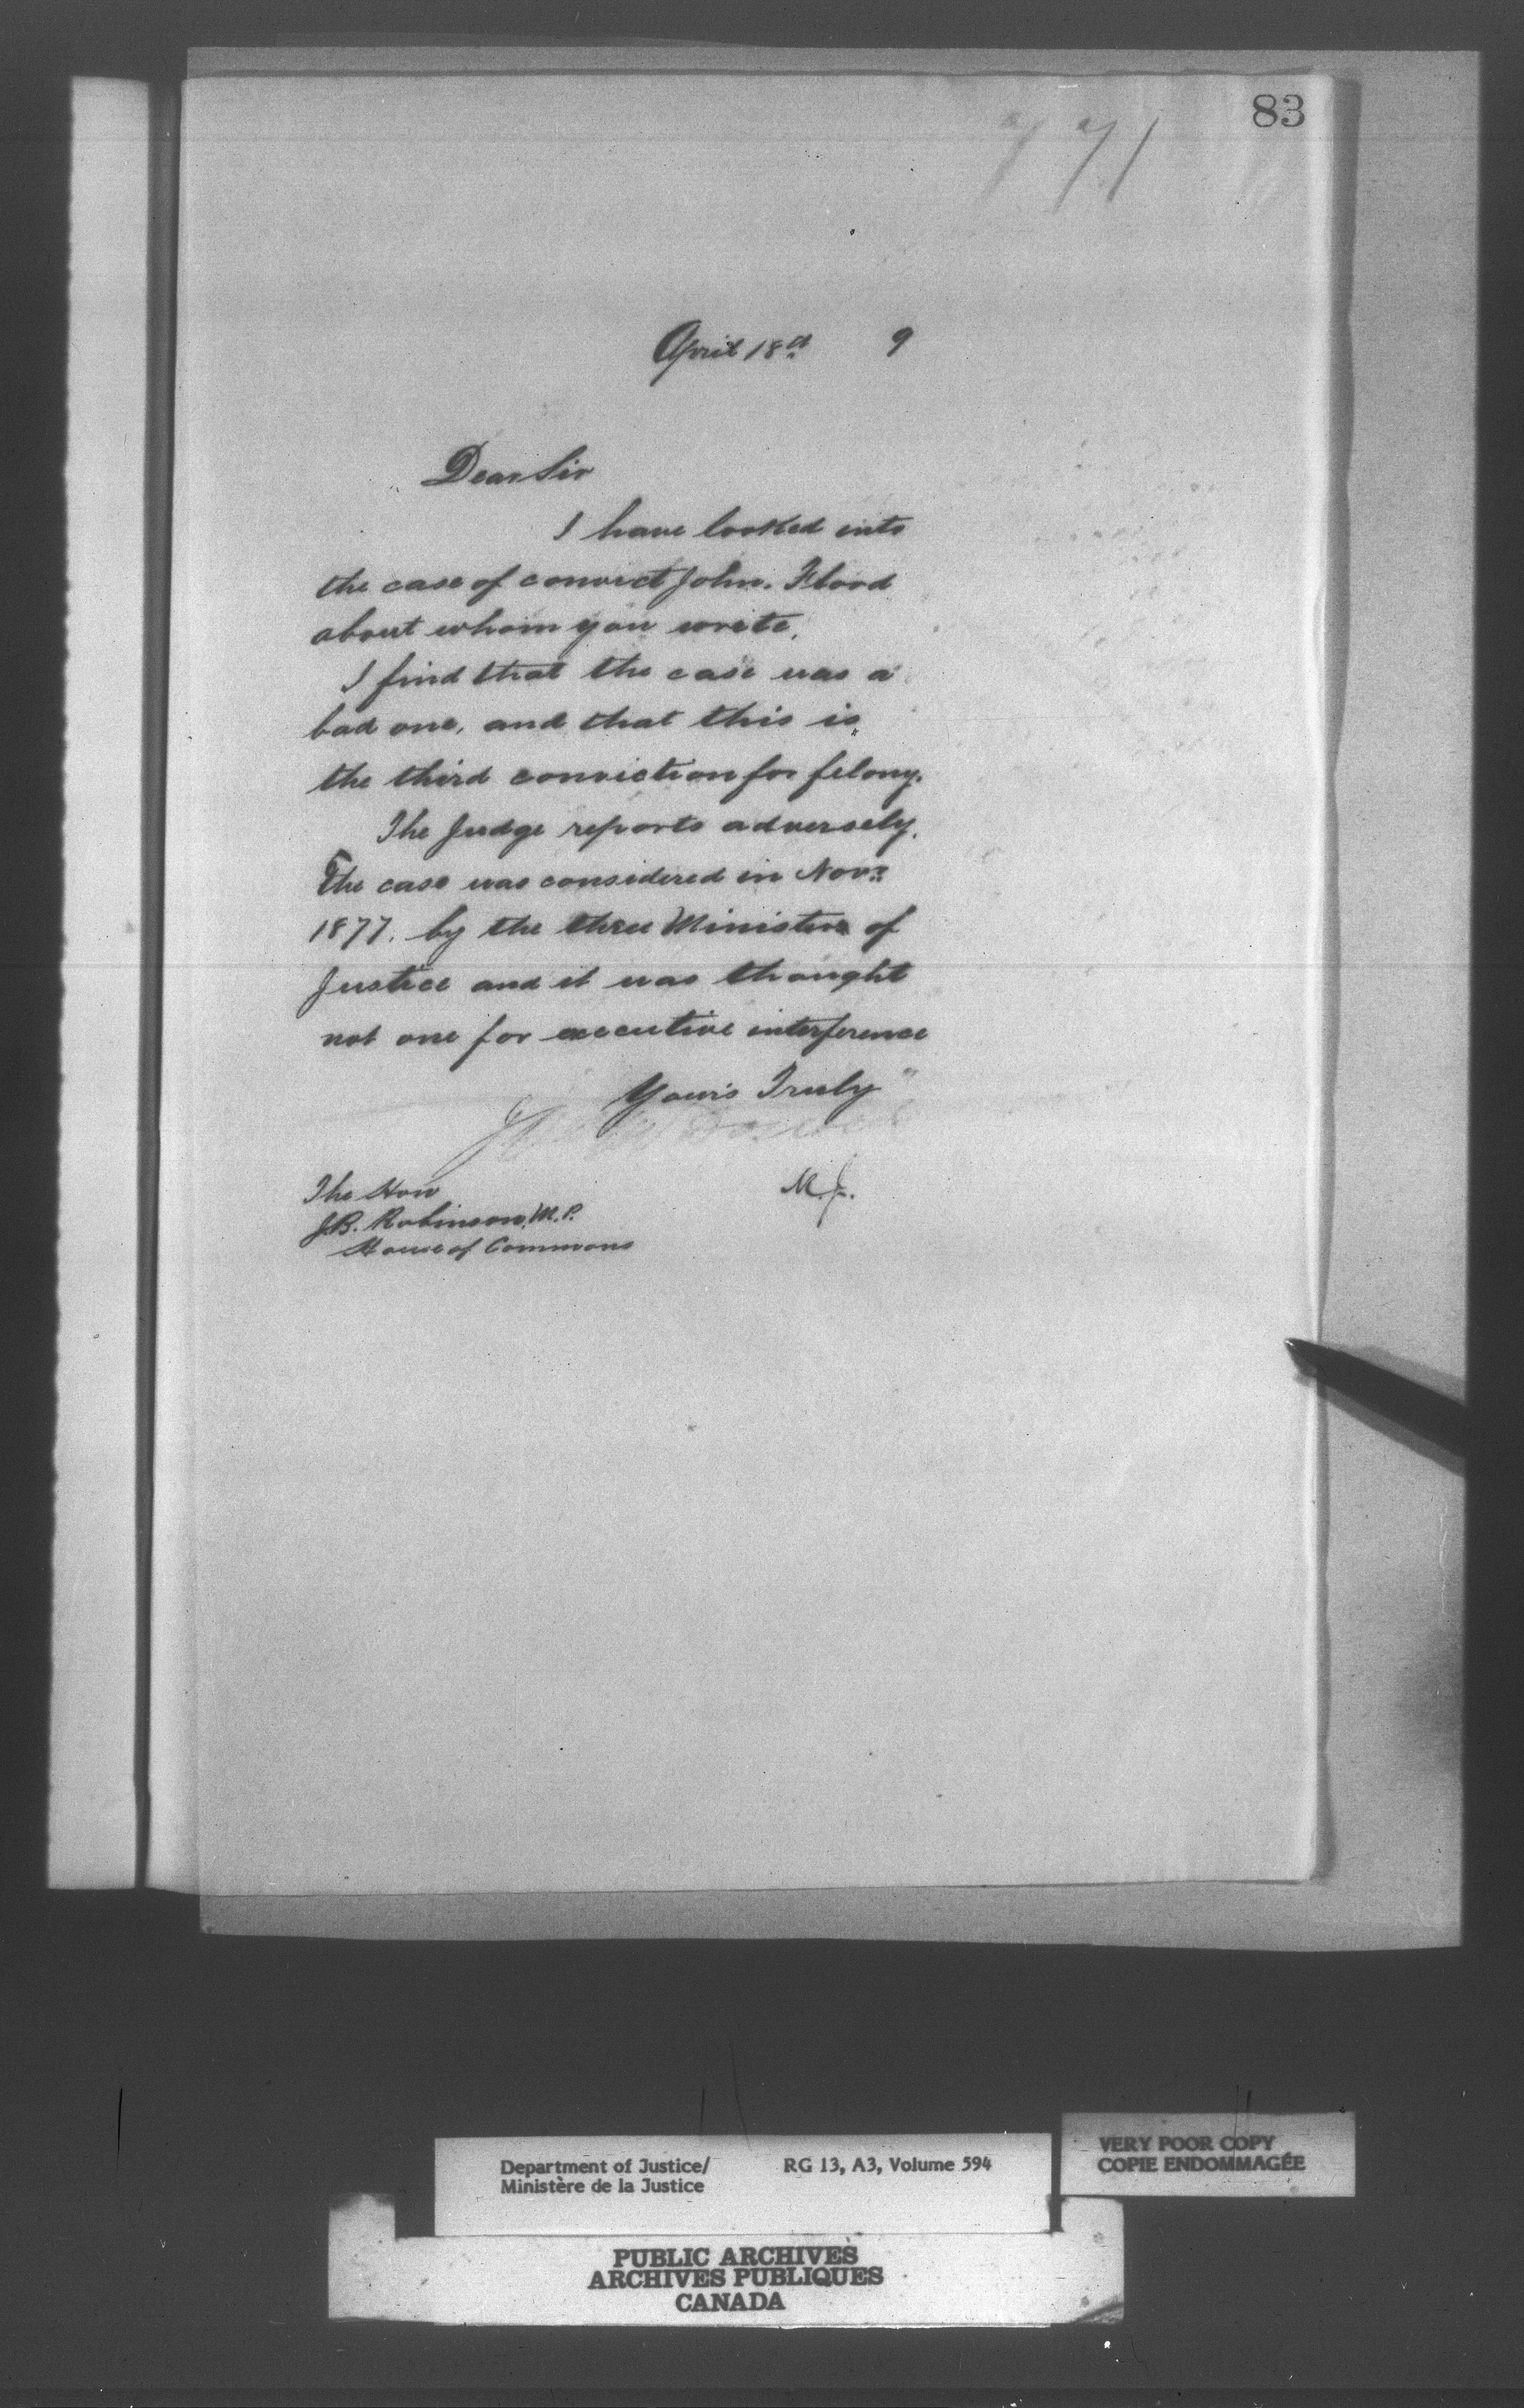 83
771
April 18th 9
Dear Sir
I have looked into
the case of convict John. Flood
about whom you write.
I find that the case was a
bad one, and that this is
the third conviction for felony.
The Judge reports adversely.
The case was considered in Novr.
1877. by the then Minister of
Justice and it was thought
not one for executive interference
Yours Truly
M.J.
The Hon
J.B. Robinson, M.P.
House of Commons
Department of Justice/ RG 13, A3, Volume 594
Ministère de la Justice
VERY POOR COPY
COPIE ENDOMMAGÉE
PUBLIC ARCHIVES
ARCHIVES PUBLIQUES
CANADA